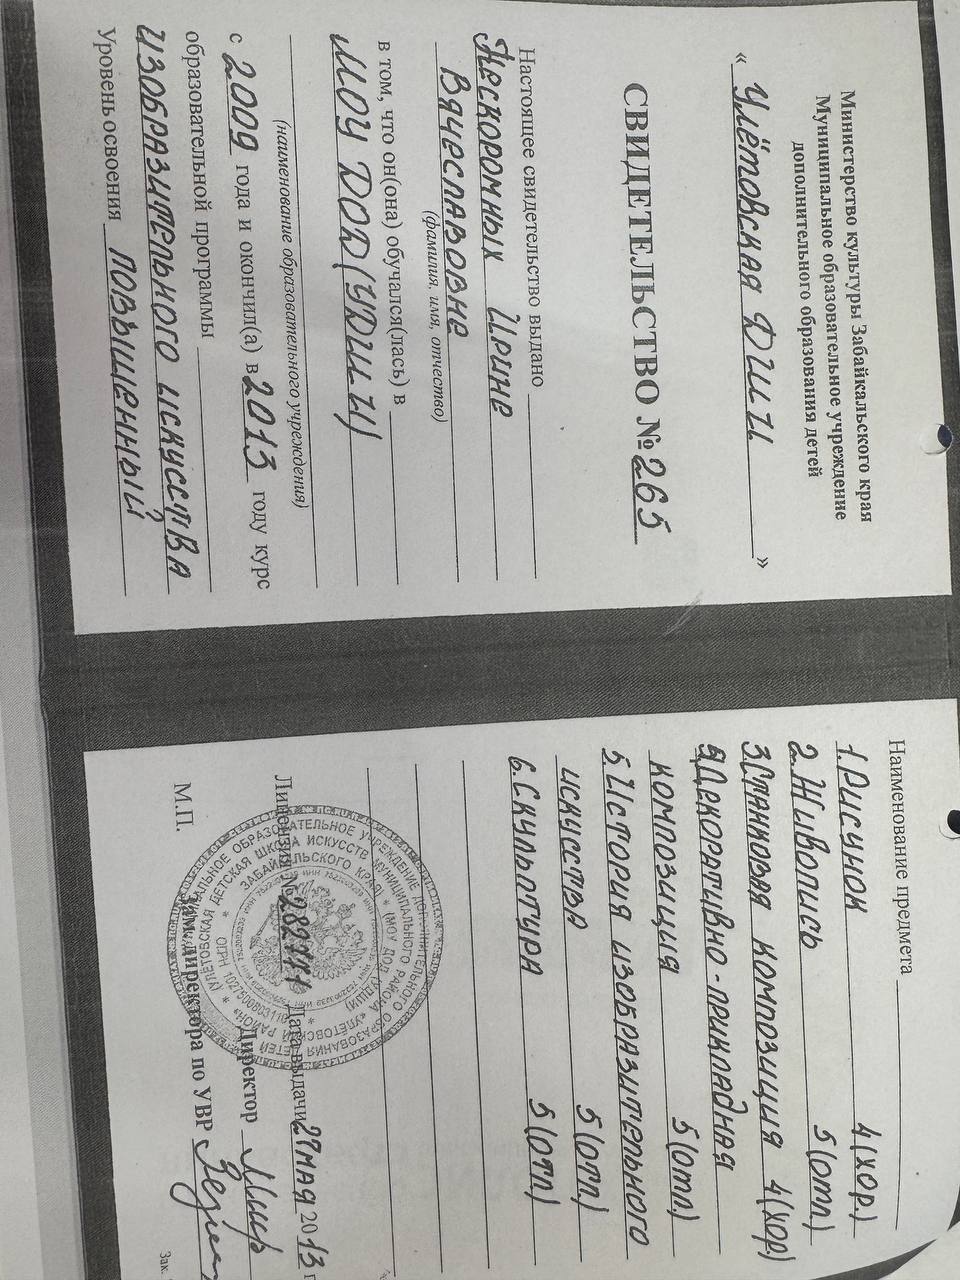 Министерство культуры Забайкальского края
Муниципальное образовательное учреждение
дополнительного образования детей
« Улётовская ДШИ »
СВИДЕТЕЛЬСТВО № 265
Настоящее свидетельство выдано
Нескоромных Ирине
Вячеславовне
(фамилия, имя, отчество)
в том, что он(она) обучался(лась) в
МОУ ДОД (УДШИ)
(наименование образовательного учреждения)
с 2009 года и окончил(а) в 2013 году курс
образовательной программы
изобразительного искусства
Уровень освоения повышенный
Наименование предмета
1. Рисунок 4 (хор.)
2. Живопись 5 (отл.)
3. Станковая композиция 4 (хор)
4. Декоративно-прикладная
композиция 5 (отл.)
5. История изобразительного
искусства 5 (отл.)
6. Скульптура 5 (отл)
Лицензия № Дата выдачи 29 мая 2013 г
Директор
М.П.
Зам. директора по УВР
Зак.
ДОПОЛНИТЕЛЬНОГО ОБРАЗОВАНИЯ ДЕТЕЙ
УЛЁТОВСКАЯ ДЕТСКАЯ ШКОЛА ИСКУССТВ
МУНИЦИПАЛЬНОГО РАЙОНА «УЛЁТОВСКИЙ РАЙОН»
ЗАБАЙКАЛЬСКОГО КРАЯ